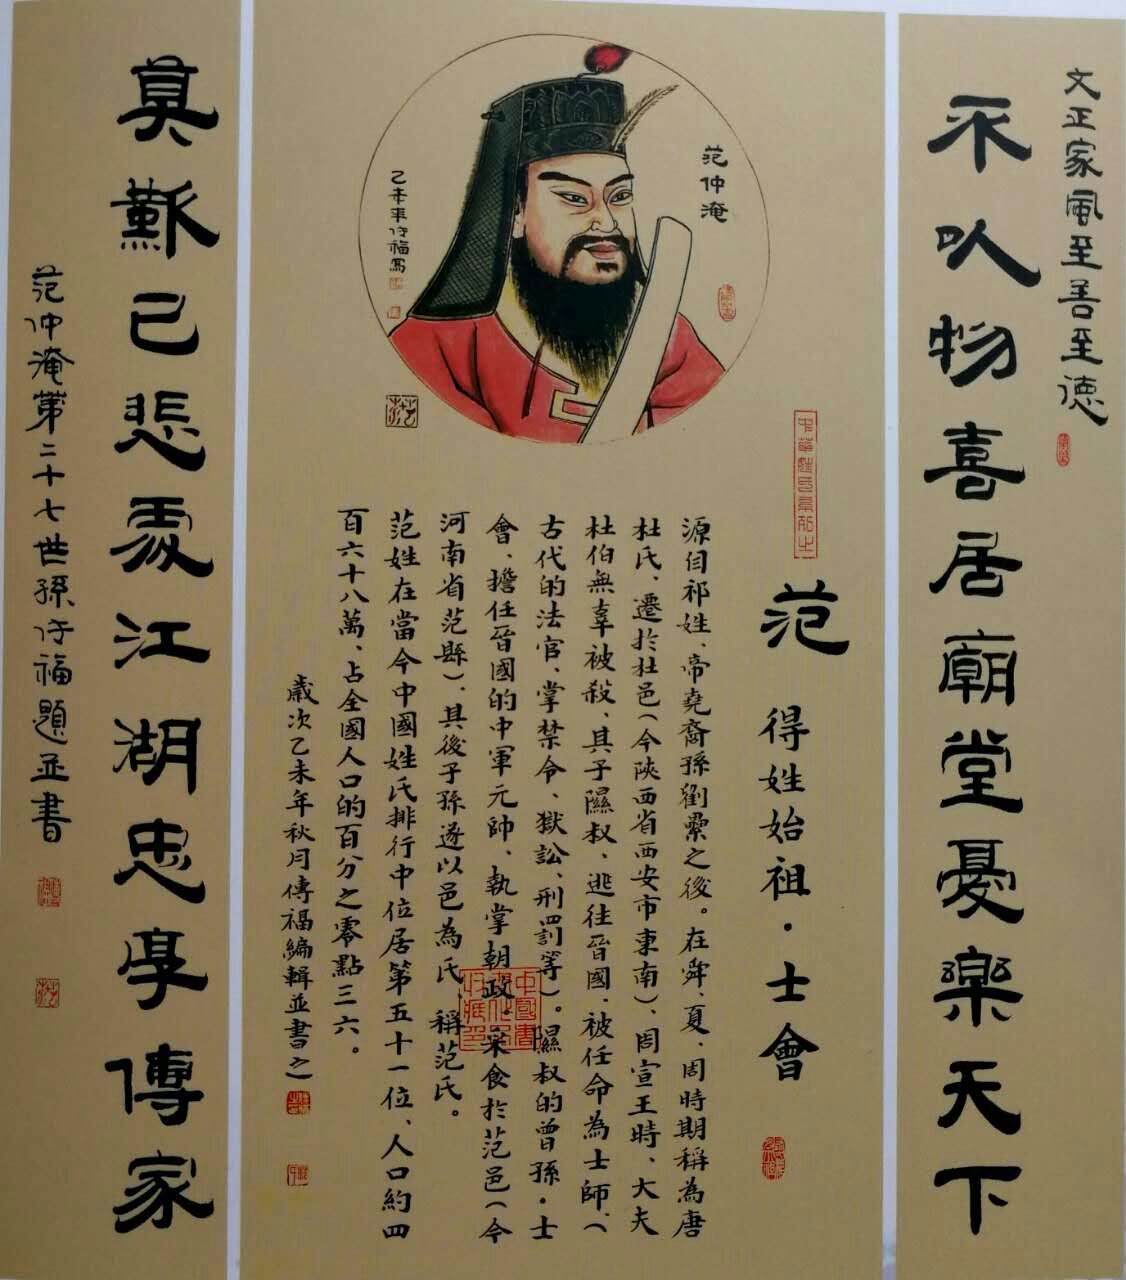 文正家風至善至德
不以物喜居廟堂憂樂天下
范仲淹
乙未年传福寫
范 得姓始祖·士會
源自祁姓、帝堯裔孫劉纍之後。在舜、夏、周時期稱為唐
杜氏、遷於杜邑(今陝西省西安市東南)、周宣王時、大夫
杜伯無辜被殺、其子隰叔、逃往晉國、被任命為士師、(
古代的法官、掌禁令、獄訟、刑罰等)。隰叔的曾孫·士
會、擔任晉國的中軍元帥、執掌朝政、采食於范邑(今
河南省范縣)、其後子孫遂以邑為氏、稱范氏。
范姓在當今中國姓氏排行中位居第五十一位、人口約四
百六十八萬、占全國人口的百分之零點三六。
歲次乙未年秋月傳福編輯並書之
莫難己悲處江湖忠厚傳家
范仲淹第二十七世孫传福題並書